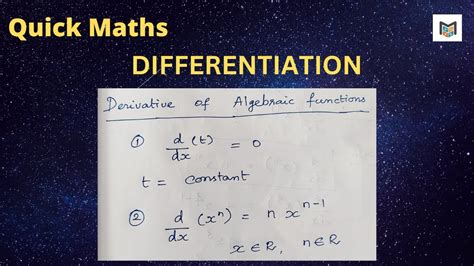 Quick Maths
DIFFERENTIATION
Derivative of Algebraic functions
① d/dx (t) = 0
t = constant
② d/dx (xⁿ) = n xⁿ⁻¹
x ∈ R, n ∈ R